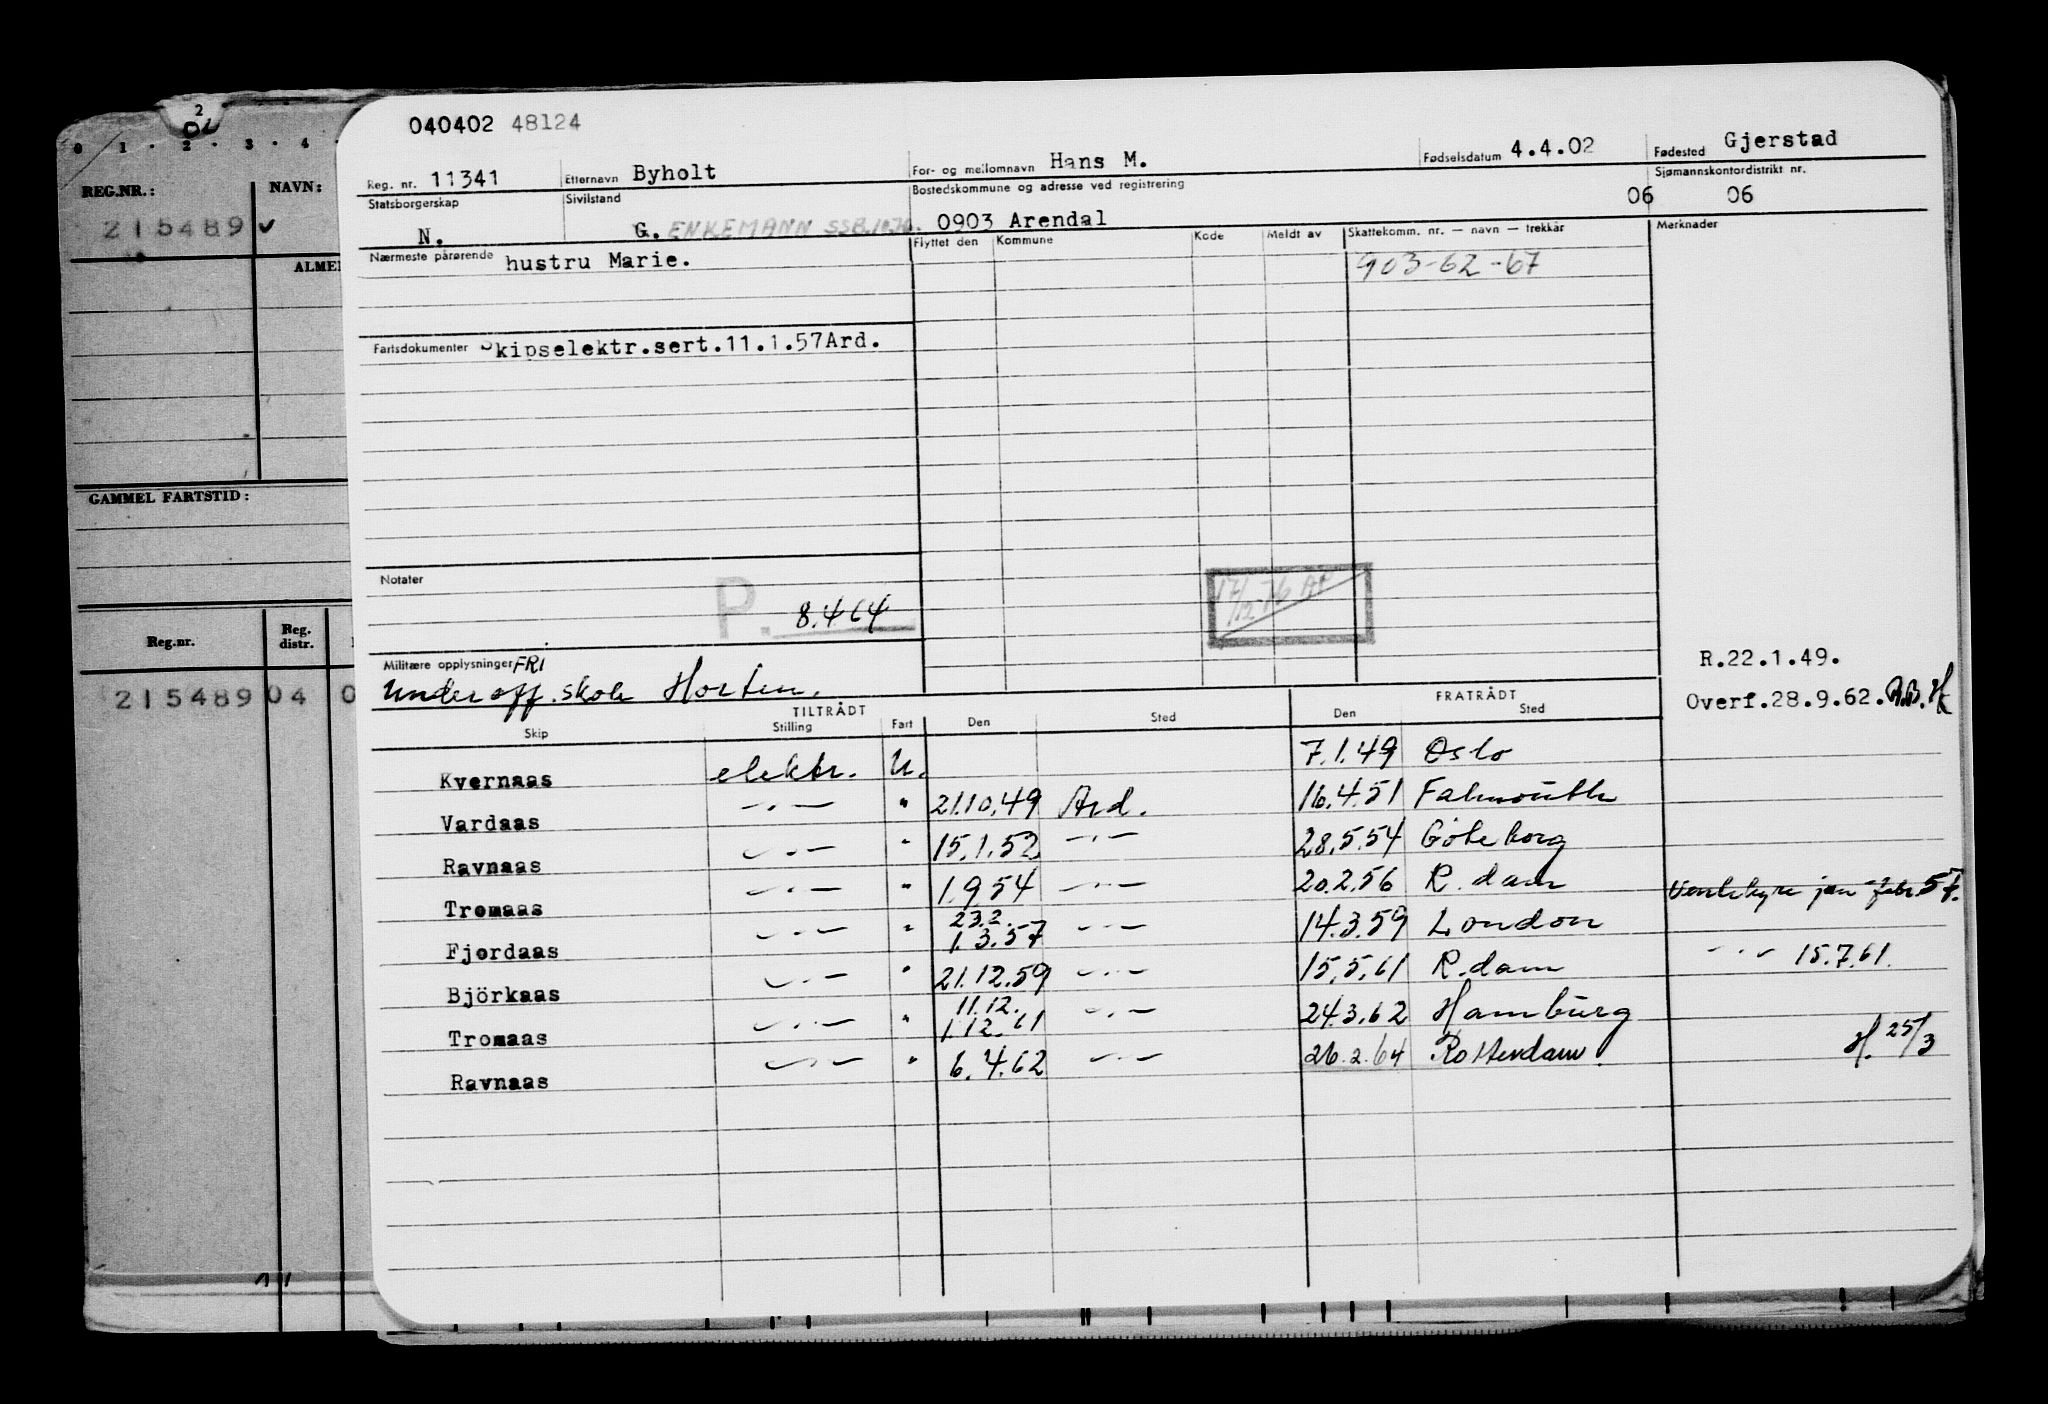 2
0 1 · 2 · 3 · 4
REG.NR.: NAVN:
215489 ✓
ALME
GAMMEL FARTSTID:
Reg.nr. Reg. distr.
215489 04 0
040402 48124
Reg. nr. 11341 Etternavn Byholt For- og mellomnavn Hans M. Fødselsdatum 4.4.02 Fødested Gjerstad
Statsborgerskap Sivilstand Bostedskommune og adresse ved registrering Sjømannskontordistrikt nr.
N. G. ENKEMANN SSB. 0903 Arendal 06 06
Nærmeste pårørende hustru Marie. Flyttet den Kommune Kode Meldt av Skattekomm. nr. — navn — trekkår Merknader
903-62-67
Fartsdokumenter Skipselektr.sert.11.1.57Ard.
Notater P. 8.4 64
17/12-76 AP
Militære opplysninger FRI
Underoff.skole Horten.
R.22.1.49.
Overf.28.9.62.
TILTRÅDT FRATRÅDT
Skip Stilling Fart Den Sted Den Sted
Kvernaas elektr. U. 7.1.49 Oslo
Vardaas —"— " 21.10.49 Ard. 16.4.51 Falmouth
Ravnaas —"— " 15.1.52 —"— 28.5.54 Göteborg
Tromaas —"— " 1.9 54 —"— 20.2.56 R.dam
Fjordaas —"— " 23.2. 1.3.57 —"— 14.3.59 London Ventehyre jan - febr 57.
Björkaas —"— " 21.12.59 —"— 15.5.61 R.dam —"— 15.7.61.
Tromaas —"— " 11.12. 1.12.61 —"— 24.3.62 Hamburg
Ravnaas —"— " 6.4.62 —"— 26.2.64 Rotterdam. H. 25/3